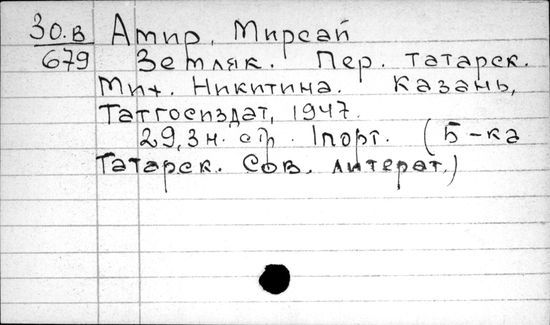 30.в Амир, Мирсай
679 Земляк. Пер. татарск.
Мих. Никитина. Казань,
Татгосиздат, 1947.
29,3 н. стр. 1 порт. (Б-ка
Татарск. Сов. литерат.)